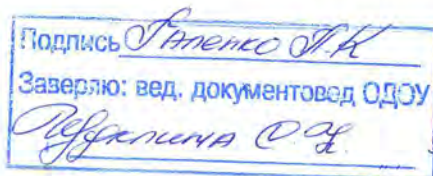 Подпись Галенко П.К
Заверяю: вед. документовед ОДОУ
О.Н.